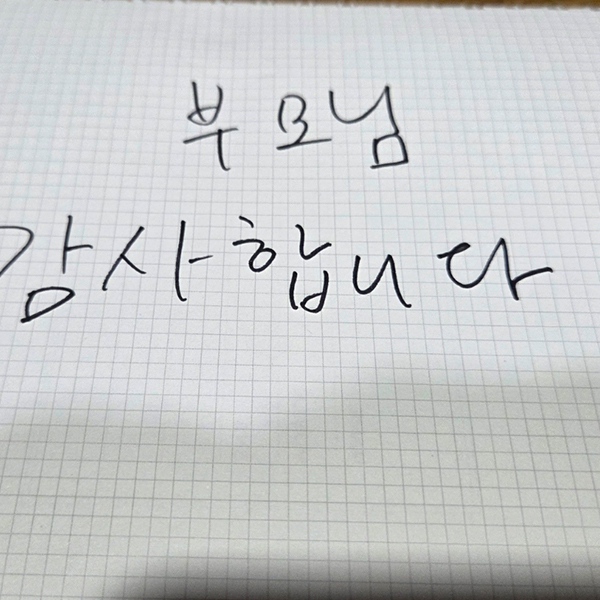 부모님
감사합니다